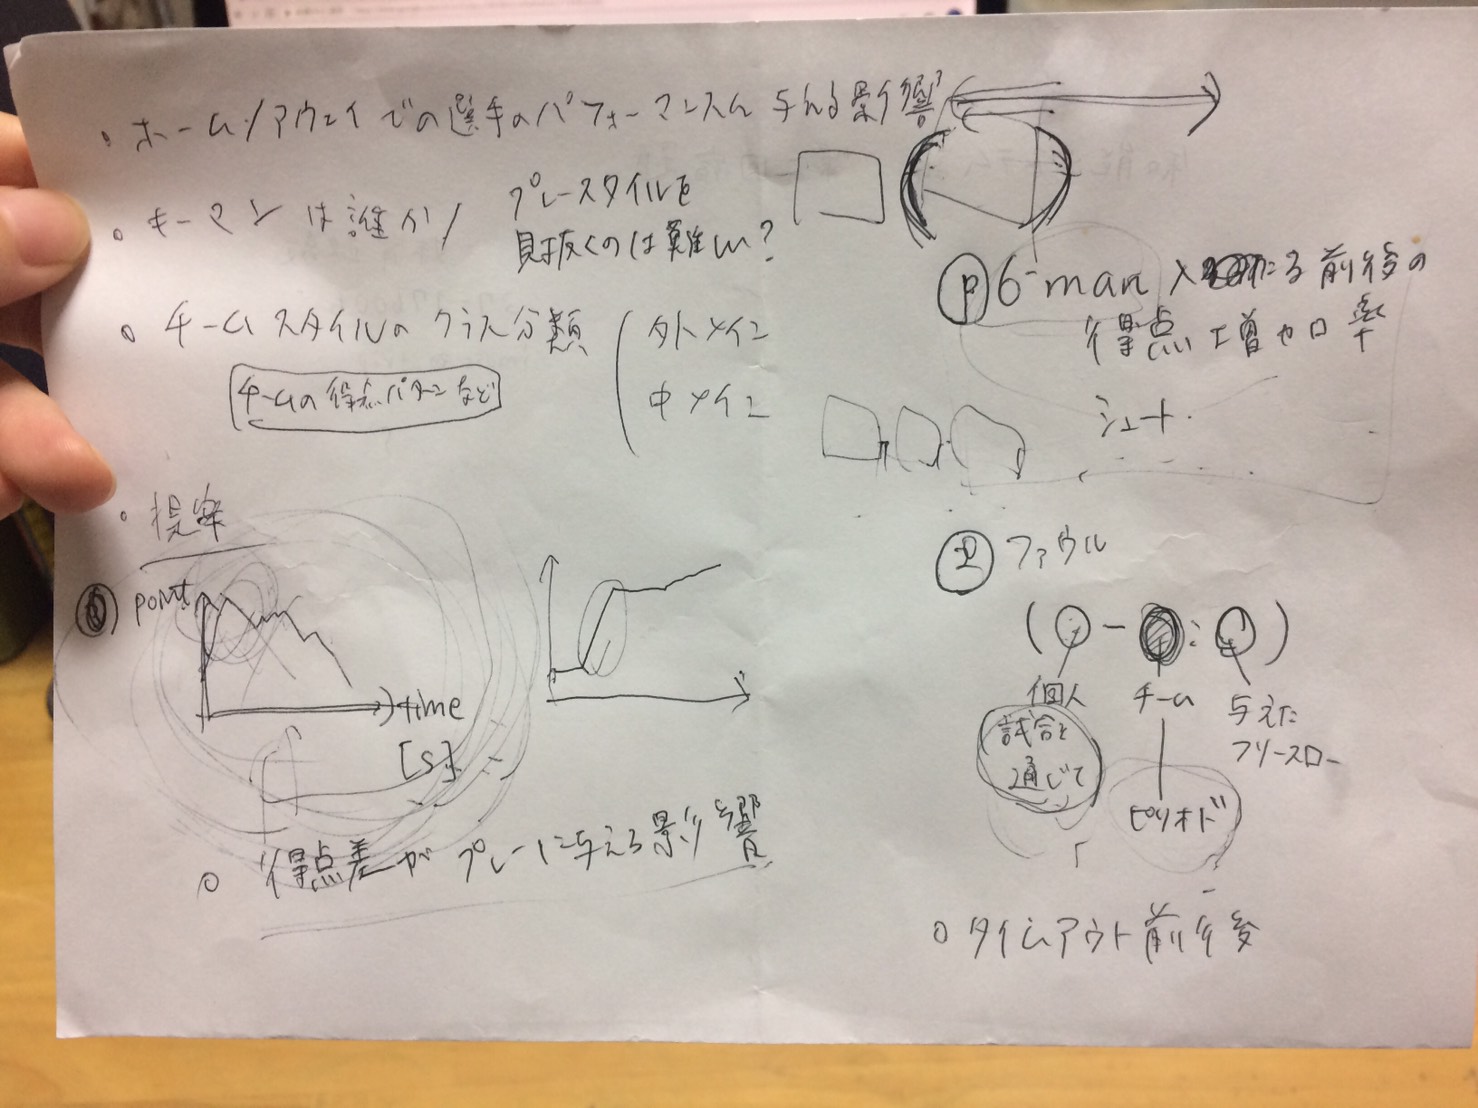 ・ホーム/アウェイでの選手のパフォーマンスに与える影響
。キーマンは誰か/
プレースタイルを
見抜くのは難しい?
。チームスタイルのクラス分類
外メイン
中メイン
チームの得点パターンなど
・提案
point
time
[s]
。得点差がプレーに与える影響
Ⓟ 6-man 入る前後の
得点増加率
シュート・
② ファウル
(○-●:○)
個人
チーム
与えた
フリースロー
試合を
通じて
ピリオド
。タイムアウト前後